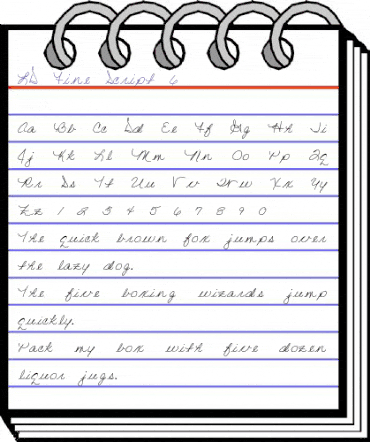 LD Fine Script 6
Aa Bb Cc Dd Ee Ff Gg Hh Ii
Jj Kk Ll Mm Nn Oo Pp Qq
Rr Ss Tt Uu Vv Ww Xx Yy
Zz 1 2 3 4 5 6 7 8 9 0
The quick brown fox jumps over
the lazy dog.
The five boxing wizards jump
quickly.
Pack my box with five dozen
liquor jugs.